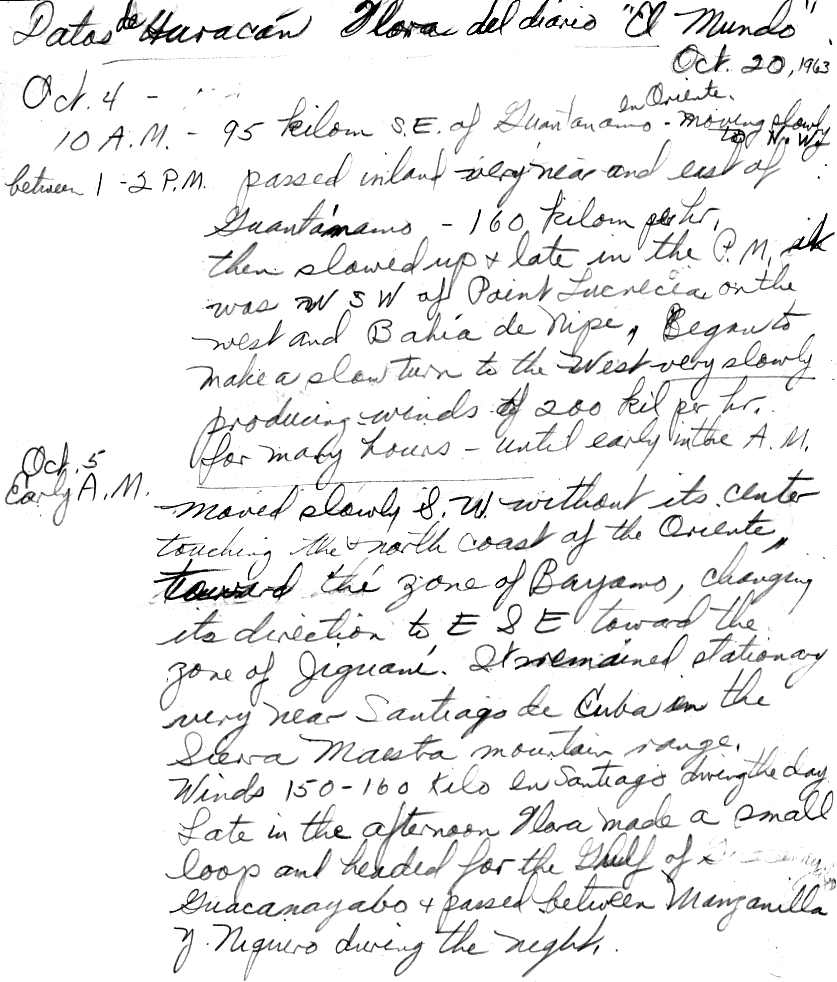 Datos de Huracán Flora del diario "El Mundo"
Oct. 20, 1963
Oct. 4 -
in Oriente.
10 A.M. - 95 kilom S.E. of Guantanamo - moving slowly
to N.W.
between 1-2 P.M. passed inland very near and east of
Guantánamo - 160 kilom per hr.
then slowed up + late in the P.M. it
was W S W of Point Lucrecia on the
west and Bahía de Nipe, Began to
make a slow turn to the West very slowly
producing winds of 200 kil per hr.
for many hours - until early in the A.M.
Oct. 5
Early A.M.
moved slowly S.W. without its center
touching the north coast of the Oriente,
toward the zone of Bayamo, changing
its direction to E S E toward the
zone of Jiguaní. It remained stationary
very near Santiago de Cuba in the
Sierra Maestra mountain range.
Winds 150-160 Kilo en Santiago during the day
Late in the afternoon Flora made a small
loop and headed for the Gulf of
Guacanayabo + passed between Manzanilla
y Niquero during the night.